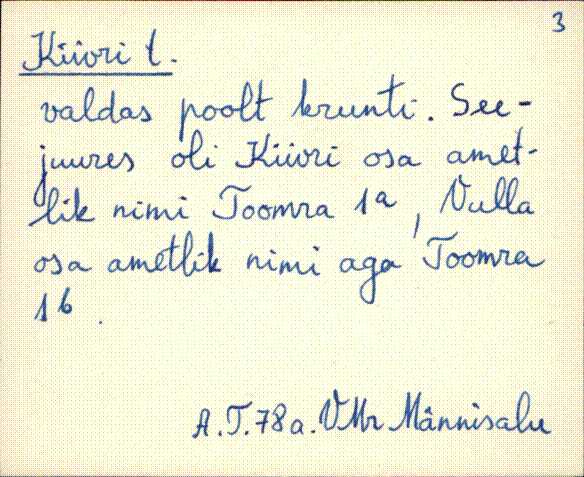 3
Kiivri t.
valdas poolt krunti. See-
juures oli Kiivri osa amet-
lik nimi Toomra 1a, Vulla
osa ametlik nimi aga Toomra
1b.
A.T.78a. VMr Männisalu